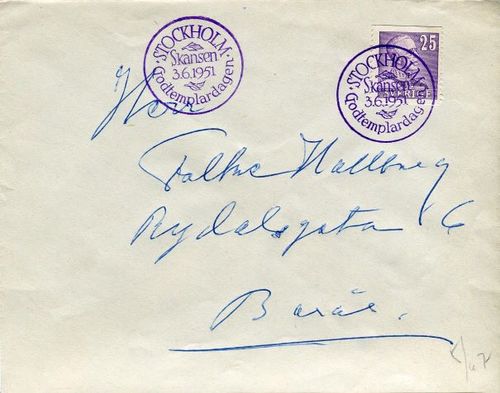 STOCKHOLM
Skansen
3.6.1951
Godtemplardagen
25
SVERIGE
STOCKHOLM
Skansen
3.6.1951
Godtemplardagen
Herr
Folke Hallberg
Rydalsgatan 6
Borås.